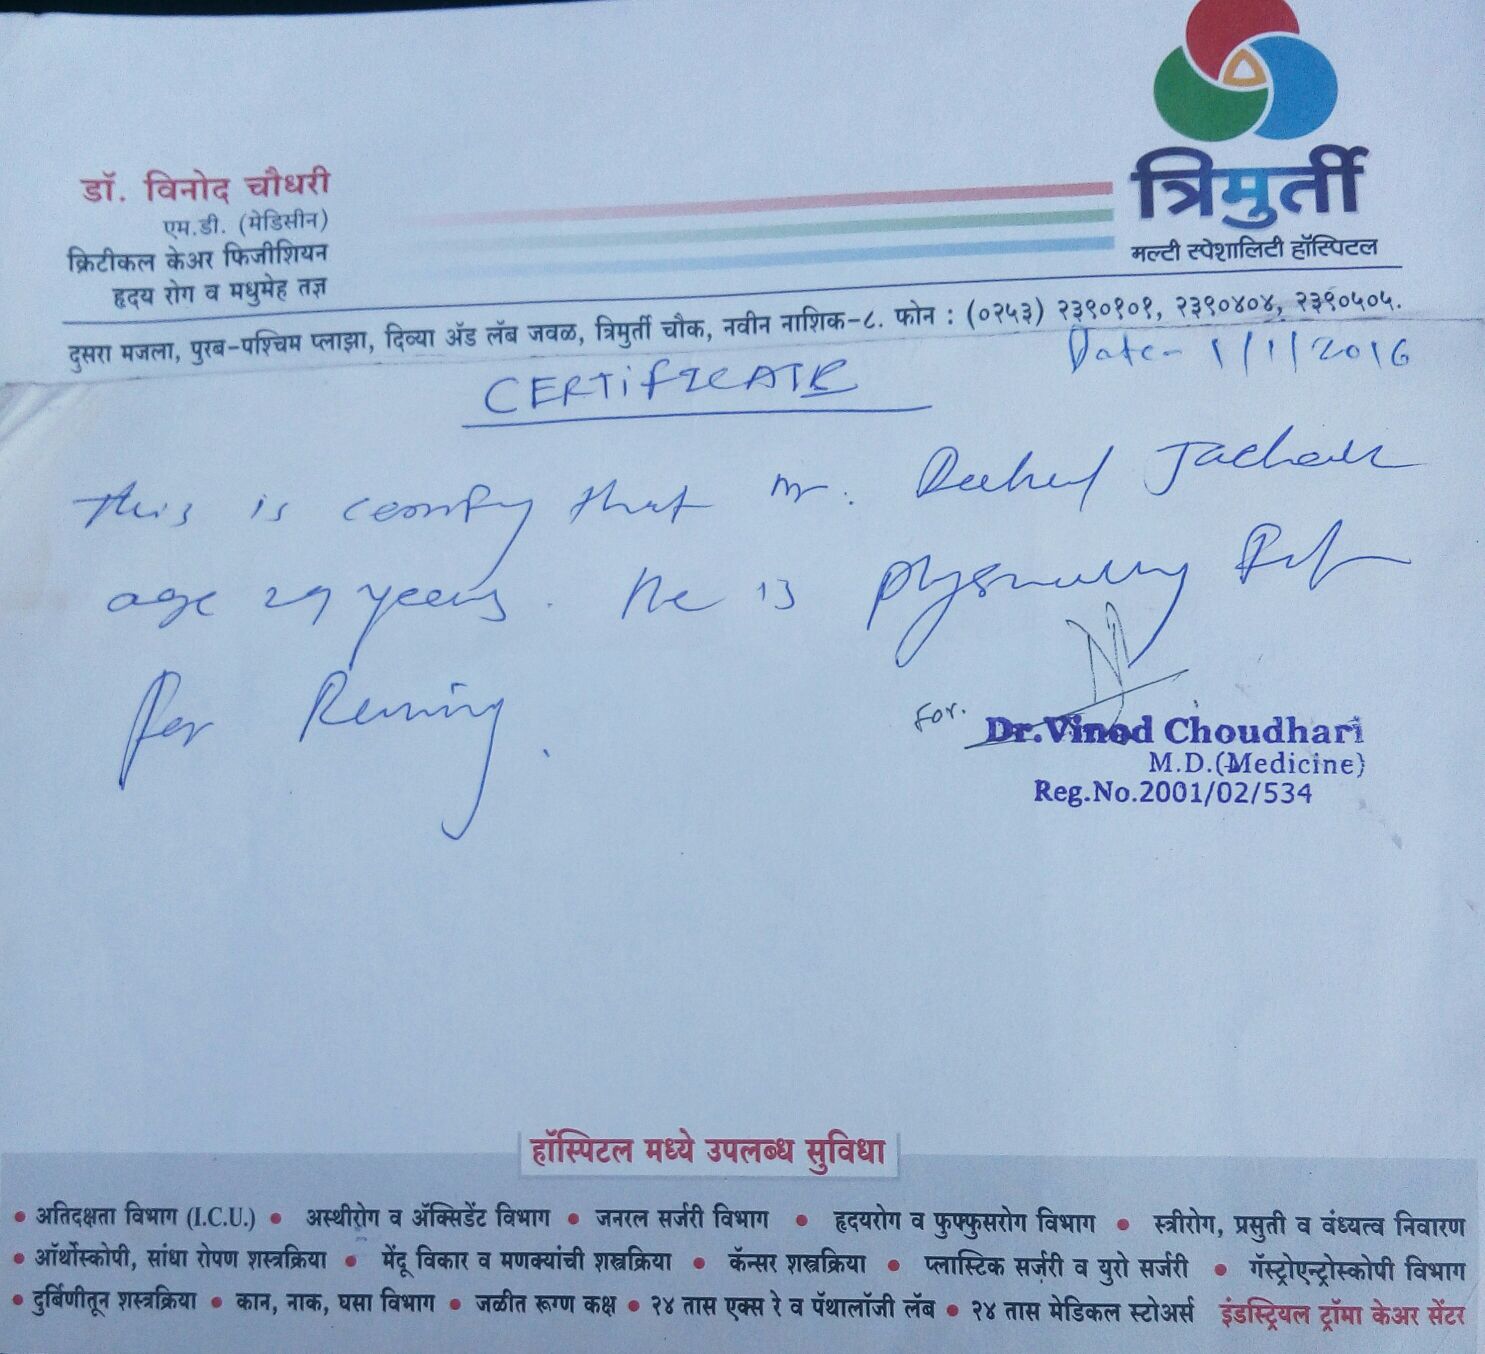 डॉ. विनोद चौधरी
एम.डी. (मेडिसीन)
क्रिटीकल केअर फिजीशियन
हृदय रोग व मधुमेह तज्ञ
त्रिमुर्ती
मल्टी स्पेशालिटी हॉस्पिटल
दुसरा मजला, पुरब-पश्चिम प्लाझा, दिव्या ॲड लॅब जवळ, त्रिमुर्ती चौक, नवीन नाशिक-८. फोन : (०२५३) २३९०१०१, २३९०४०४, २३९०५०५.
Date- 1/1/2016
CERTIFICATE
This is certify that Mr.
age 29 years. He is
for Running.
For.
Dr.Vinod Choudhari
M.D.(Medicine)
Reg.No.2001/02/534
हॉस्पिटल मध्ये उपलब्ध सुविधा
• अतिदक्षता विभाग (I.C.U.) • अस्थीरोग व ॲक्सिडेंट विभाग • जनरल सर्जरी विभाग • हृदयरोग व फुफ्फुसरोग विभाग • स्त्रीरोग, प्रसुती व वंध्यत्व निवारण
• ऑर्थोस्कोपी, सांधा रोपण शस्त्रक्रिया • मेंदू विकार व मणक्यांची शस्त्रक्रिया • कॅन्सर शस्त्रक्रिया • प्लास्टिक सर्जरी व युरो सर्जरी • गॅस्ट्रोएन्ट्रोस्कोपी विभाग
• दुर्बिणीतून शस्त्रक्रिया • कान, नाक, घसा विभाग • जळीत रूग्ण कक्ष • २४ तास एक्स रे व पॅथालॉजी लॅब • २४ तास मेडिकल स्टोअर्स इंडस्ट्रियल ट्रॉमा केअर सेंटर